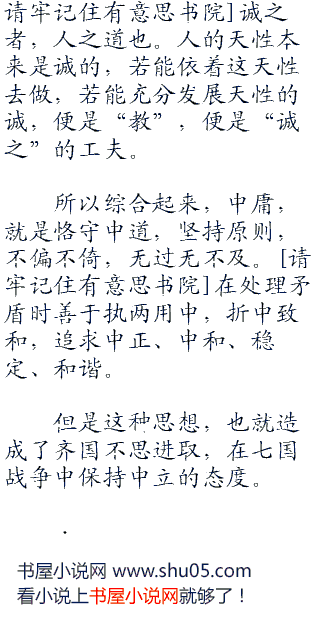 请牢记住有意思书院]诚之
者，人之道也。人的天性本
来是诚的，若能依着这天性
去做，若能充分发展天性的
诚，便是“教”，便是“诚
之”的工夫。
所以综合起来，中庸，
就是恪守中道，坚持原则，
不偏不倚，无过无不及。[请
牢记住有意思书院]在处理矛
盾时善于执两用中，折中致
和，追求中正、中和、稳
定、和谐。
但是这种思想，也就造
成了齐国不思进取，在七国
战争中保持中立的态度。
.
书屋小说网 www.shu05.com
看小说上书屋小说网就够了！